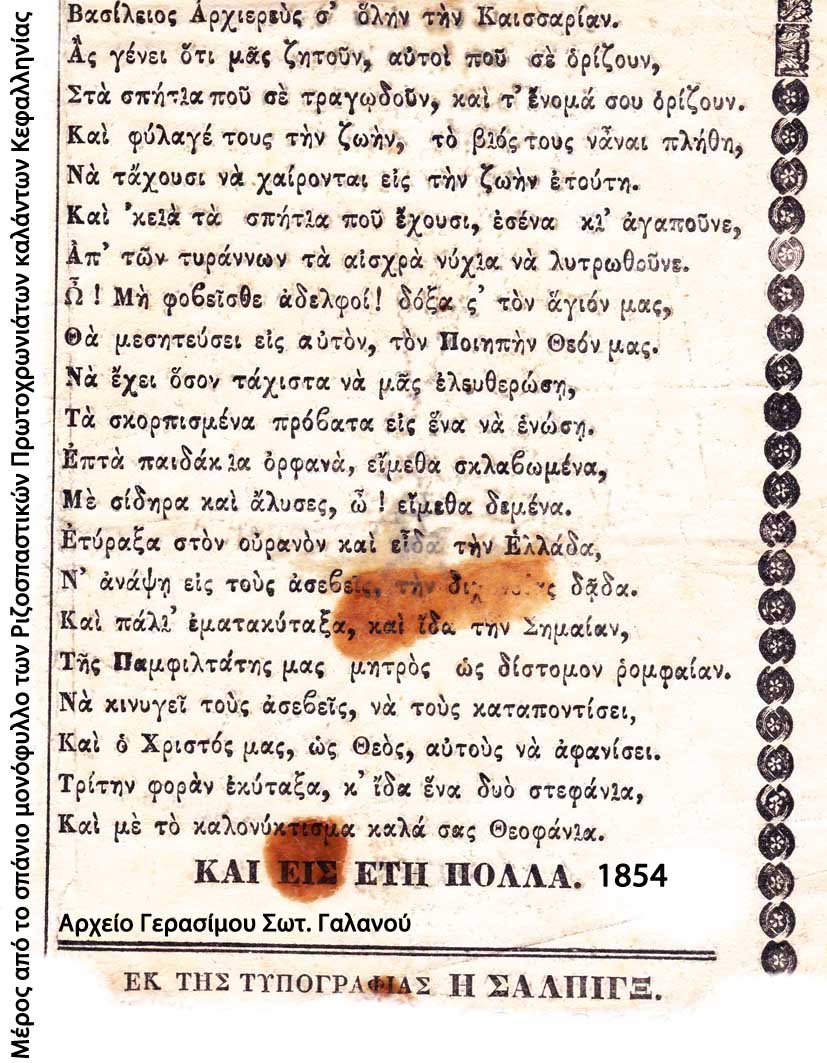 Βασίλειος Ἀρχιερεὺς σ’ ὅλην τὴν Καισσαρίαν.
Ἂς γένει ὅτι μᾶς ζητοῦν, αὐτοὶ ποῦ σὲ ὁρίζουν,
Στὰ σπήτια ποῦ σὲ τραγῳδοῦν, καὶ τ’ ὄνομά σου ὁρίζουν.
Καὶ φύλαγέ τους τὴν ζωὴν, τὸ βιός τους νἆναι πλήθη,
Νὰ τἄχουσι νὰ χαίρονται εἰς τὴν ζωὴν ἐτούτη.
Καὶ ’κειὰ τὰ σπήτια ποῦ ἔχουσι, ἐσένα κι’ ἀγαποῦνε,
Ἀπ’ τῶν τυράννων τὰ αἰσχρὰ νύχια νὰ λυτρωθοῦνε.
Ὦ ! Μὴ φοβεῖσθε ἀδελφοί! δόξα ς’ τὸν ἅγιόν μας,
Θὰ μεσητεύσει εἰς αὐτὸν, τὸν Ποιηπὴν Θεόν μας.
Νὰ ἔχει ὅσον τάχιστα νὰ μᾶς ἐλευθερώσῃ,
Τὰ σκορπισμένα πρόβατα εἰς ἕνα νὰ ἑνώσῃ.
Ἑπτὰ παιδάκια ὀρφανὰ, εἴμεθα σκλαβωμένα,
Μὲ σίδηρα καὶ ἄλυσες, ὦ ! εἴμεθα δεμένα.
Ἐτύραξα στὸν οὐρανὸν καὶ εἶδα τὴν Ἑλλάδα,
Ν’ ἀνάψῃ εἰς τοὺς ἀσεβεῖς, τὴν δᾷδα.
Καὶ πάλι’ ἐματακύταξα, καὶ ἴδα την Σημαίαν,
Τῆς Παμφιλτάτης μας μητρὸς ὡς δίστομον ῥομφαίαν.
Νὰ κινυγεῖ τοὺς ἀσεβεῖς, νὰ τοὺς καταποντίσει,
Καὶ ὁ Χριστός μας, ὡς Θεὸς, αὐτοὺς νὰ ἀφανίσει.
Τρίτην φορὰν ἐκύταξα, κ’ ἴδα ἕνα δυὸ στεφάνια,
Καὶ μὲ τὸ καλονύκτισμα καλά σας Θεοφάνια.
ΚΑΙ ΕΙΣ ΕΤΗ ΠΟΛΛΑ. 1854
Αρχείο Γερασίμου Σωτ. Γαλανού
ΕΚ ΤΗΣ ΤΥΠΟΓΡΑΦΙΑΣ Η ΣΑΛΠΙΓΞ.
Μέρος από το σπάνιο μονόφυλλο των Ριζοσπαστικών Πρωτοχρωνιάτων καλάντων Κεφαλληνίας